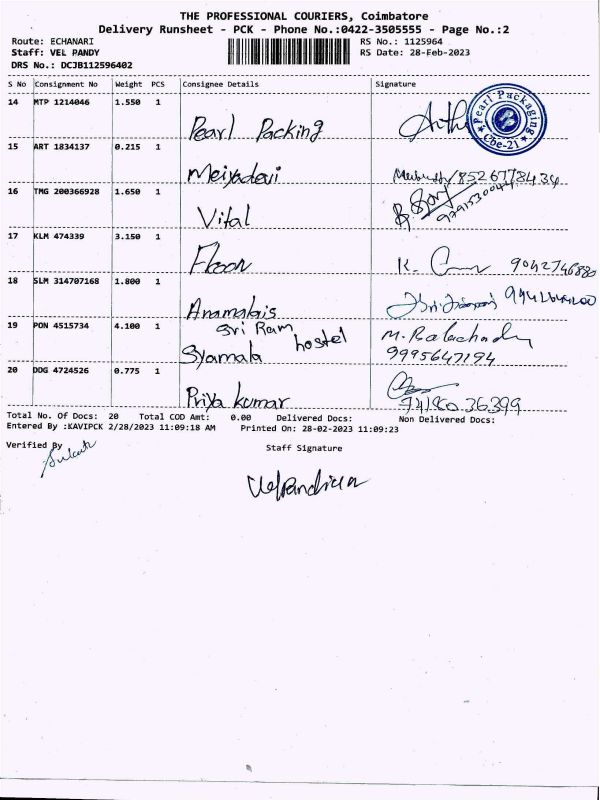 THE PROFESSIONAL COURIERS, Coimbatore
Delivery Runsheet - PCK - Phone No.:0422-3505555 - Page No.:2
Route: ECHANARI
RS No.: 1125964
Staff: VEL PANDY
RS Date: 28-Feb-2023
DRS No.: DCJB112596402
S No Consignment No Weight PCS Consignee Details Signature
14 MTP 1214046 1.550 1
Pearl Packing
Pearl Packaging
Cbe-21
15 ART 1834137 0.215 1
Meiyadevi 8526778434
16 TMG 200366928 1.650 1
Vital
17 KLM 474339 3.150 1
Floor K. 9042746880
18 SLM 314707168 1.800 1
Anamalais
19 PON 4515734 4.100 1
Sri Ram hostel
Syamala
9995647194
20 DDG 4724526 0.775 1
Priya kumar
Total No. Of Docs: 20 Total COD Amt: 0.00 Delivered Docs: Non Delivered Docs:
Entered By :KAVIPCK 2/28/2023 11:09:18 AM Printed On: 28-02-2023 11:09:23
Verified By
Staff Signature